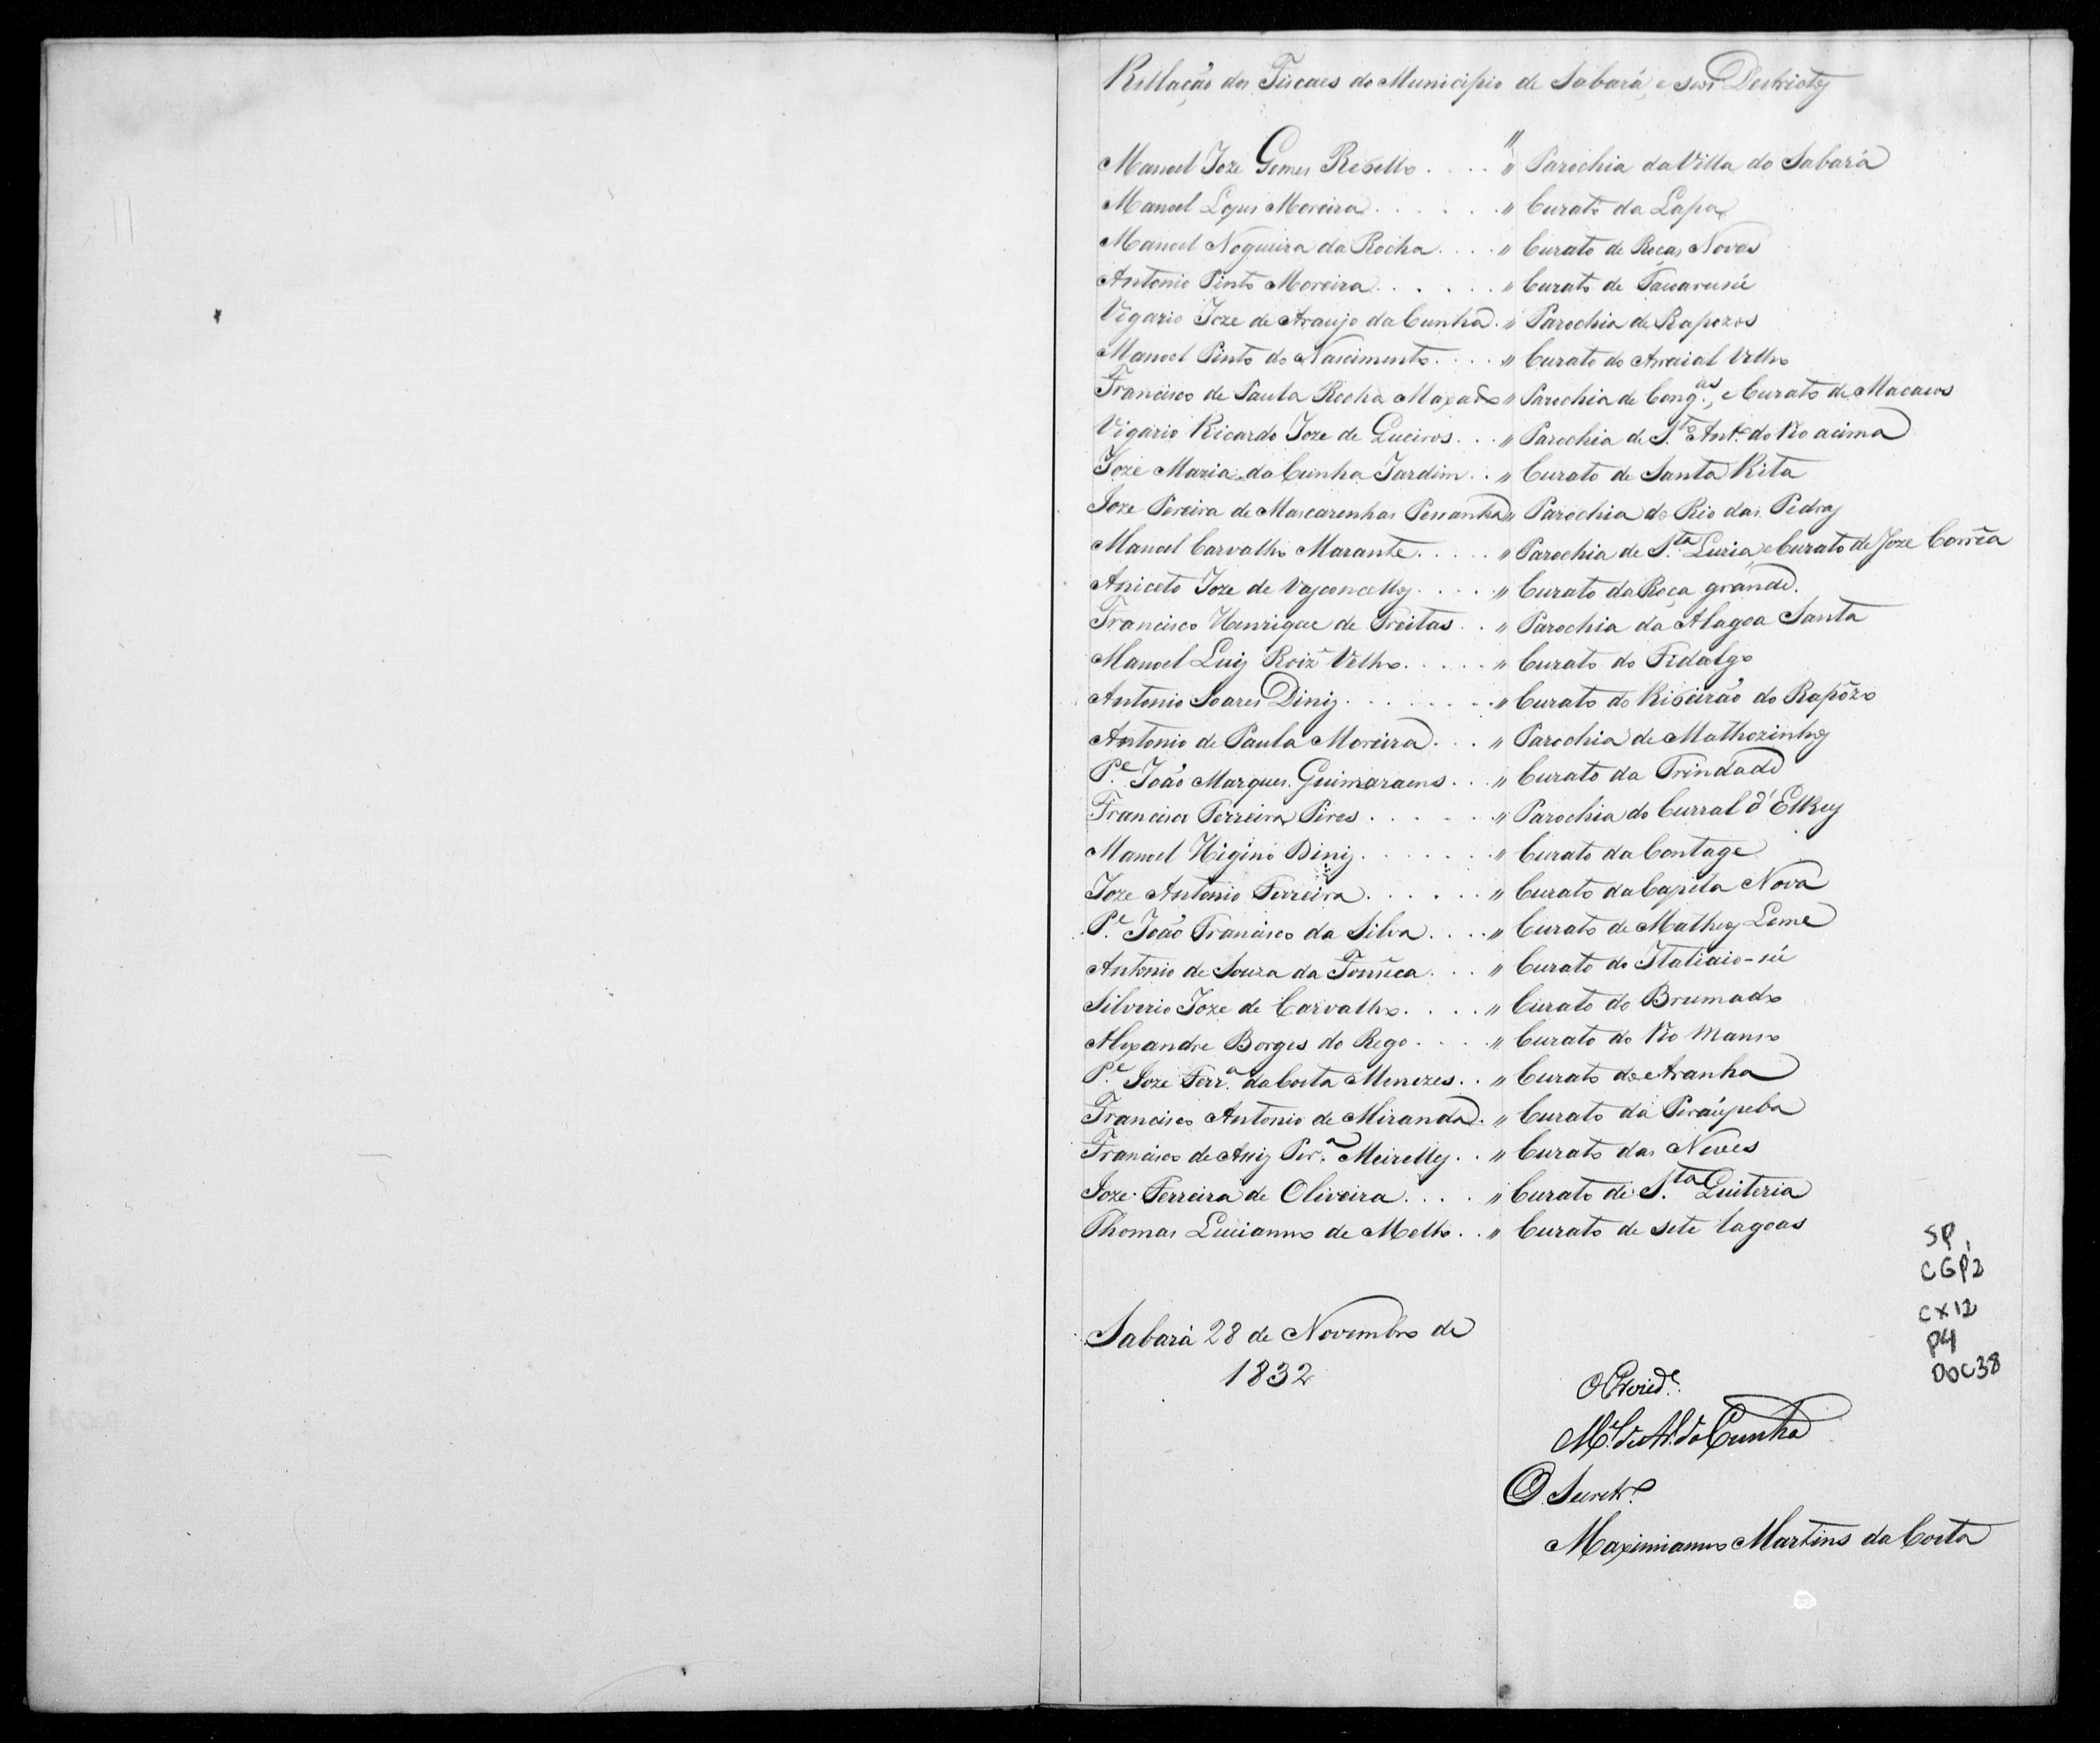 Rellação dos Fiscaes do Municipio de Sabará, e seos Destrictos
"
Manoel Joze Gomes Rebello . . . . " Parochia da Villa do Sabará
Manoel Lopes Moreira . . . . . . " Curato da Lapa
Manoel Nogueira da Rocha . . . . " Curato de Roças Novas
Antonio Pinto Moreira . . . . . . " Curato de
Vigario Joze de Araujo da Cunha . " Parochia de Rapozos
Manoel Pinto do Nascimento . . . . " Curato do Arraial Velho
Francisco de Paula Rocha Maxado " Parochia de Cong.as, e Curato de Macacos
Vigario Ricardo Joze de Queiros . . . " Parochia de S.to Ant.o do Rio acima
Joze Maria da Cunha Jardim . . " Curato de Santa Rita
Joze Pereira de Mascarenhas Pessanha " Parochia do Rio das Pedras
Manoel Carvalho Marante . . . . . " Parochia de S.ta Luzia, e Curato de Joze Corrêa
Aniceto Joze de Vasconcellos . . . . " Curato da Roça grande.
Francisco Henrique de Freitas . . " Parochia da Alagoa Santa
Manoel Luis Roiz Velho . . . . . " Curato do Fidalgo
Antonio Soares Dinis . . . . . . . . " Curato do Ribeirão do Rapôzo
Antonio de Paula Moreira . . . " Parochia de Mathozinhos
P.e João Marques Guimaraens . . . " Curato da Trindade
Francisco Ferreira Pires . . . . . . " Parochia do Curral d'ElRey
Manoel Higino Dinis . . . . . . . " Curato da Contage
Joze Antonio Ferreira . . . . . . " Curato da Capela Nova
P.e João Francisco da Silva . . . . " Curato de Matheos Leme
Antonio de Souza da Fonseca . . . " Curato do Itatiaio-sú
Silverio Joze de Carvalho . . . . " Curato do Brumado
Alexandre Borges do Rego . . . . " Curato do Rio Manso
P.e Joze Ferr.a da Costa Menezes . . " Curato do Aranha
Francisco Antonio de Miranda . " Curato da Peraúpeba
Francisco de Assis Per.a Meirelles . . " Curato das Neves
Joze Ferreira de Oliveira . . . . " Curato de S.ta Quiteria
Thomas Lucianno de Mello . . " Curato de sete lagoas
SP,
CGP2
CX12
P4
DOC38
Sabará 28 de Novembro de
1832
O Prezid.e
M.el de Ar.o da Cunha
O Secretr.o
Maximianno Martins da Costa